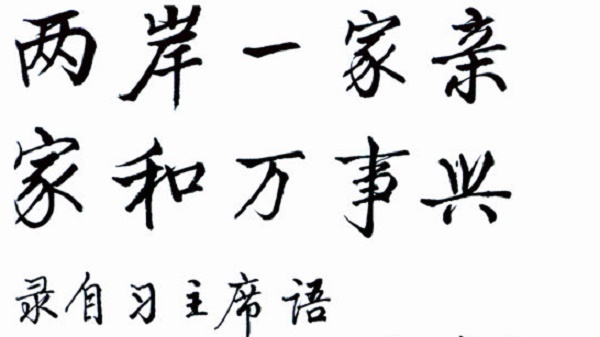 两岸一家亲
家和万事兴
录自习主席语